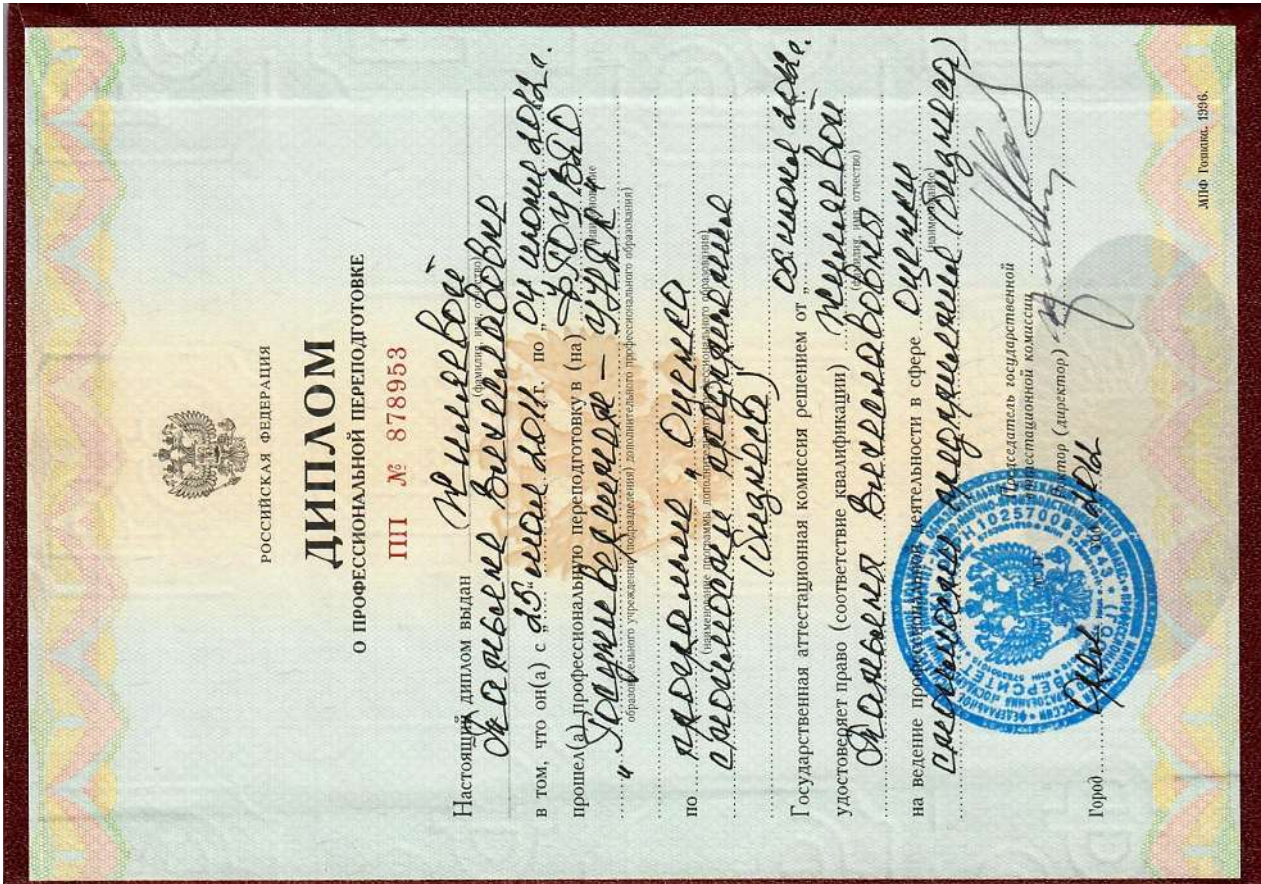 РОССИЙСКАЯ ФЕДЕРАЦИЯ
ДИПЛОМ
О ПРОФЕССИОНАЛЬНОЙ ПЕРЕПОДГОТОВКЕ
ПП № 878953
Настоящий диплом выдан
(фамилия, имя, отчество)
Татьяне Вячеславовне
в том, что он(а) с „25“ мая 2011 г. по „04 июня 2012 г.
прошел(а) профессиональную переподготовку в (на) ФГОУ ВПО
(наименование
"Госуниверситет – УНПК"
образовательного учреждения (подразделения) дополнительного профессионального образования)
по программе „Оценка
(наименование программы дополнительного профессионального образования)
стоимости предприятия
(бизнеса)
Государственная аттестационная комиссия решением от „ 08 июня 2012.
удостоверяет право (соответствие квалификации)
(фамилия, имя, отчество)
Татьяны Вячеславовны
на ведение профессиональной деятельности в сфере оценки
(наименование)
стоимости предприятия (бизнеса)
Председатель государственной
аттестационной комиссии
Ректор (директор)
Город Орел 2012
МПФ Гознака. 1996.